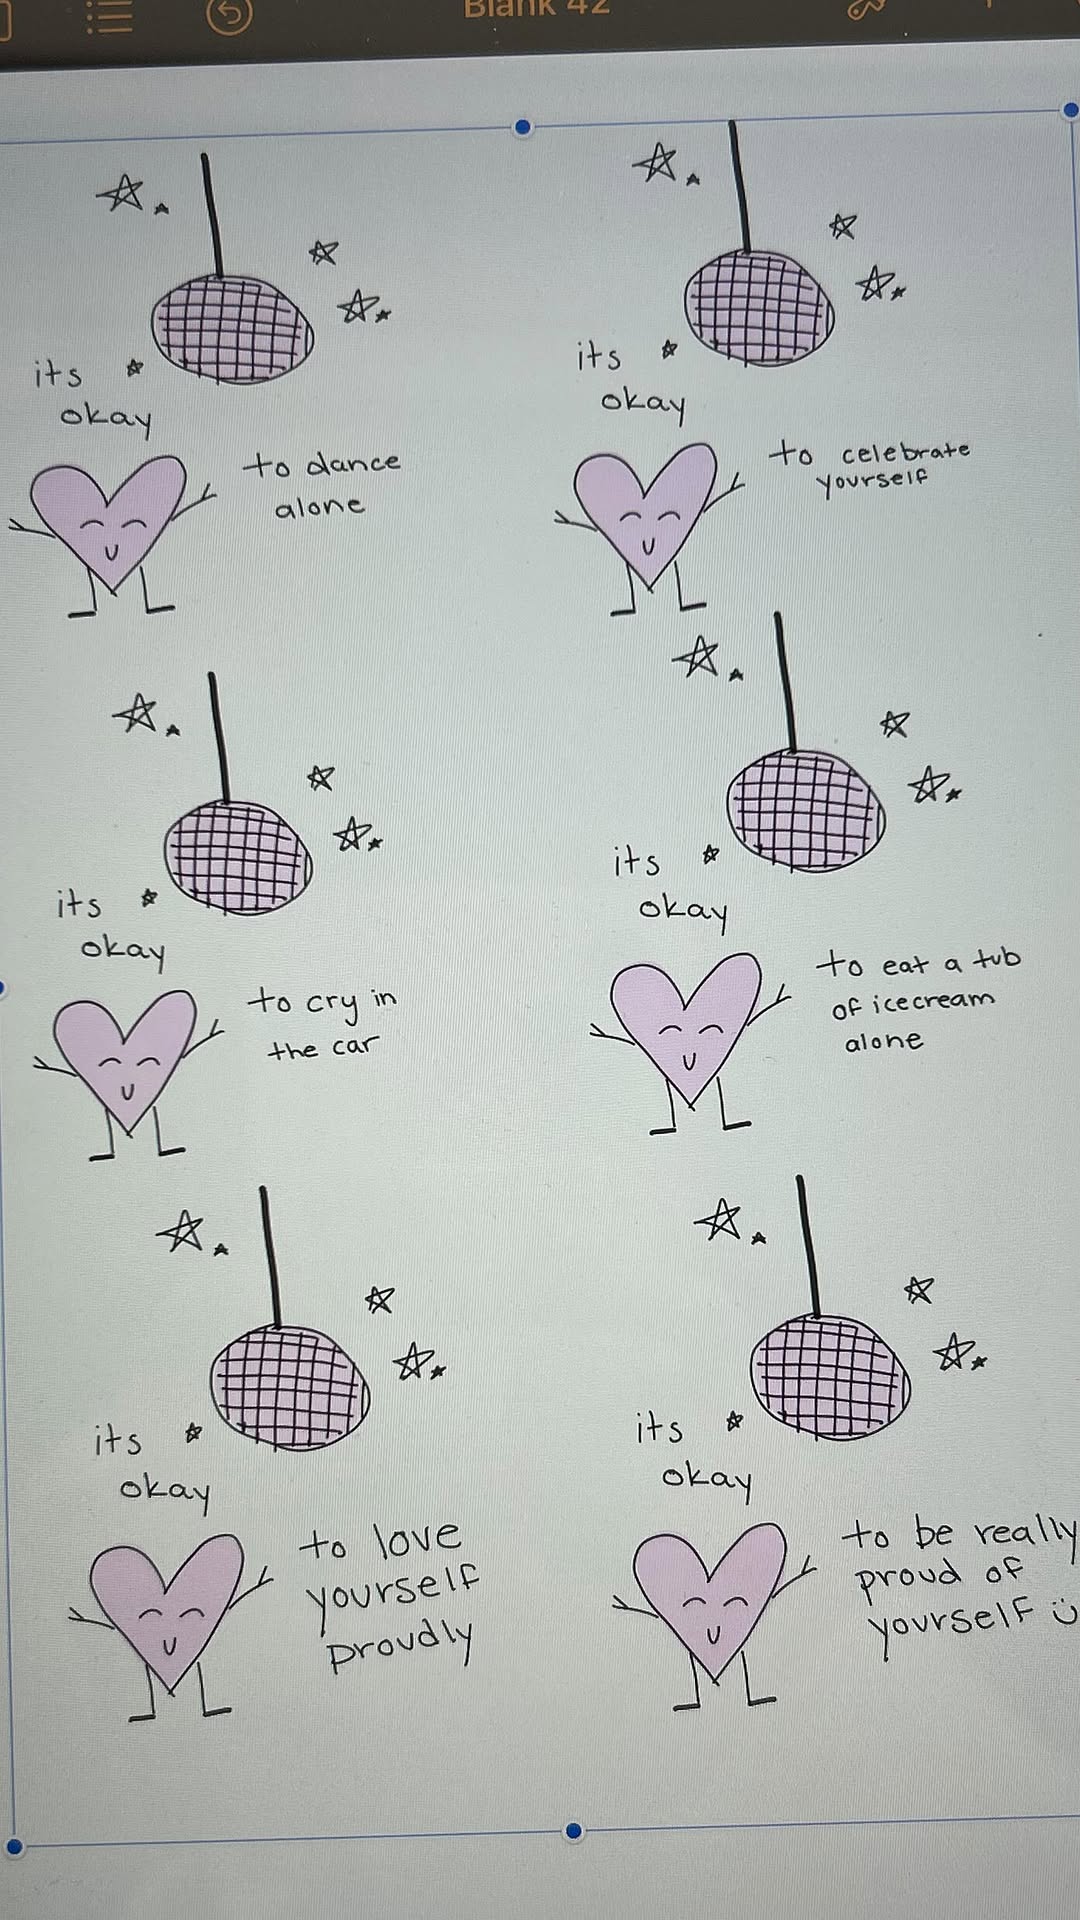 Blank 42
its
okay
to dance
alone
its
okay
to celebrate
yourself
its
okay
to cry in
the car
its
okay
to eat a tub
of icecream
alone
its
okay
to love
yourself
proudly
its
okay
to be really
proud of
yourself ü